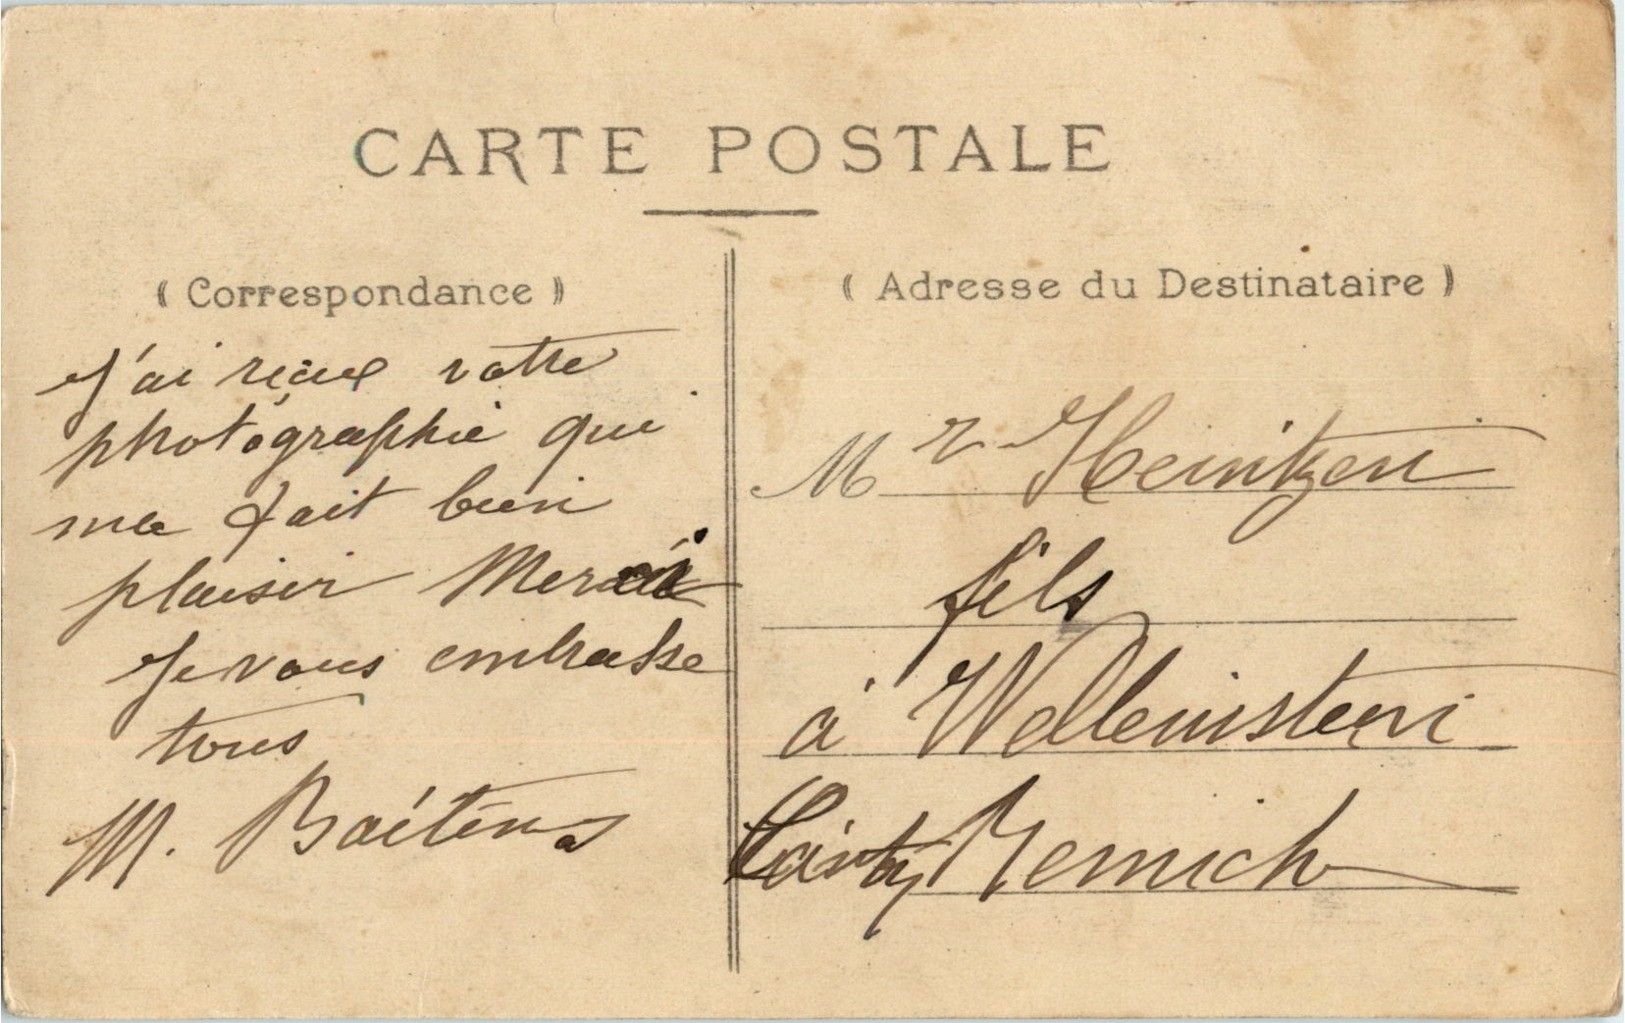 CARTE POSTALE
( Correspondance )
J'ai reçue votre
photographie qui
ma fait bien
plaisir Merci
Je vous embrasse
tous
M. Baétens
( Adresse du Destinataire )
Mr Heintzen
fils
à Wellenstein
Remich